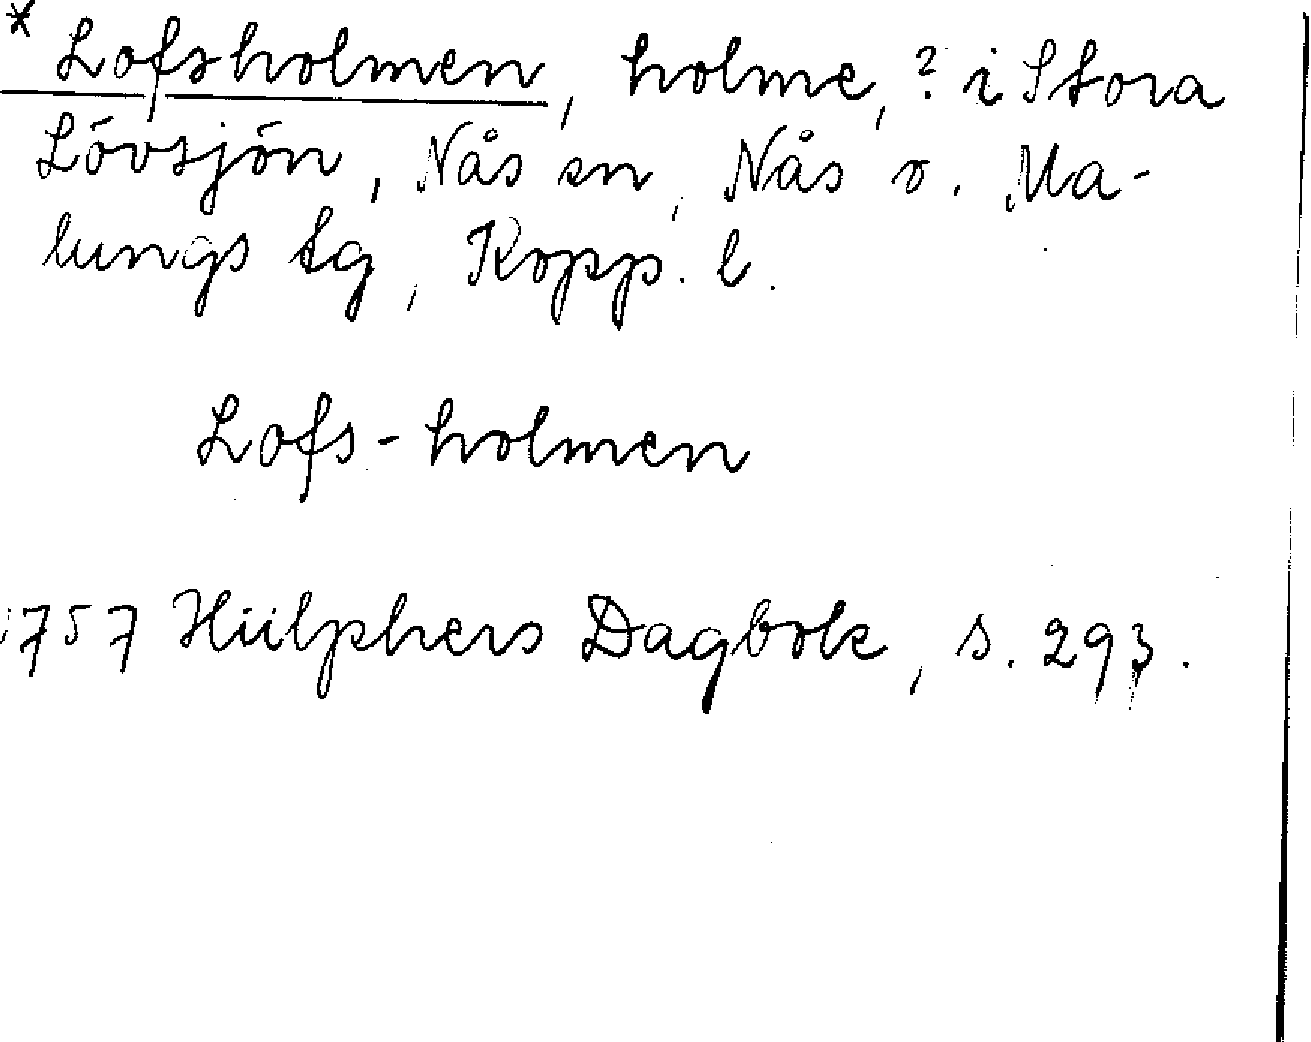 * Lofsholmen, holme, ? i Stora
Lövsjön, Nås sn, Nås o. Ma-
lungs tg, Kopp. l.
Lofs-holmen
1757 Hülphers Dagbok, s. 293.